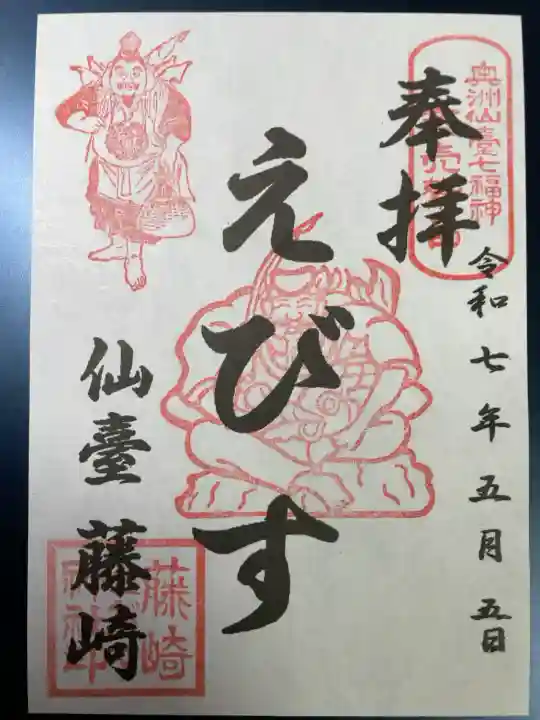 奥州仙臺七福神
奉拝
令和七年五月五日
えびす
仙臺 藤崎
藤崎